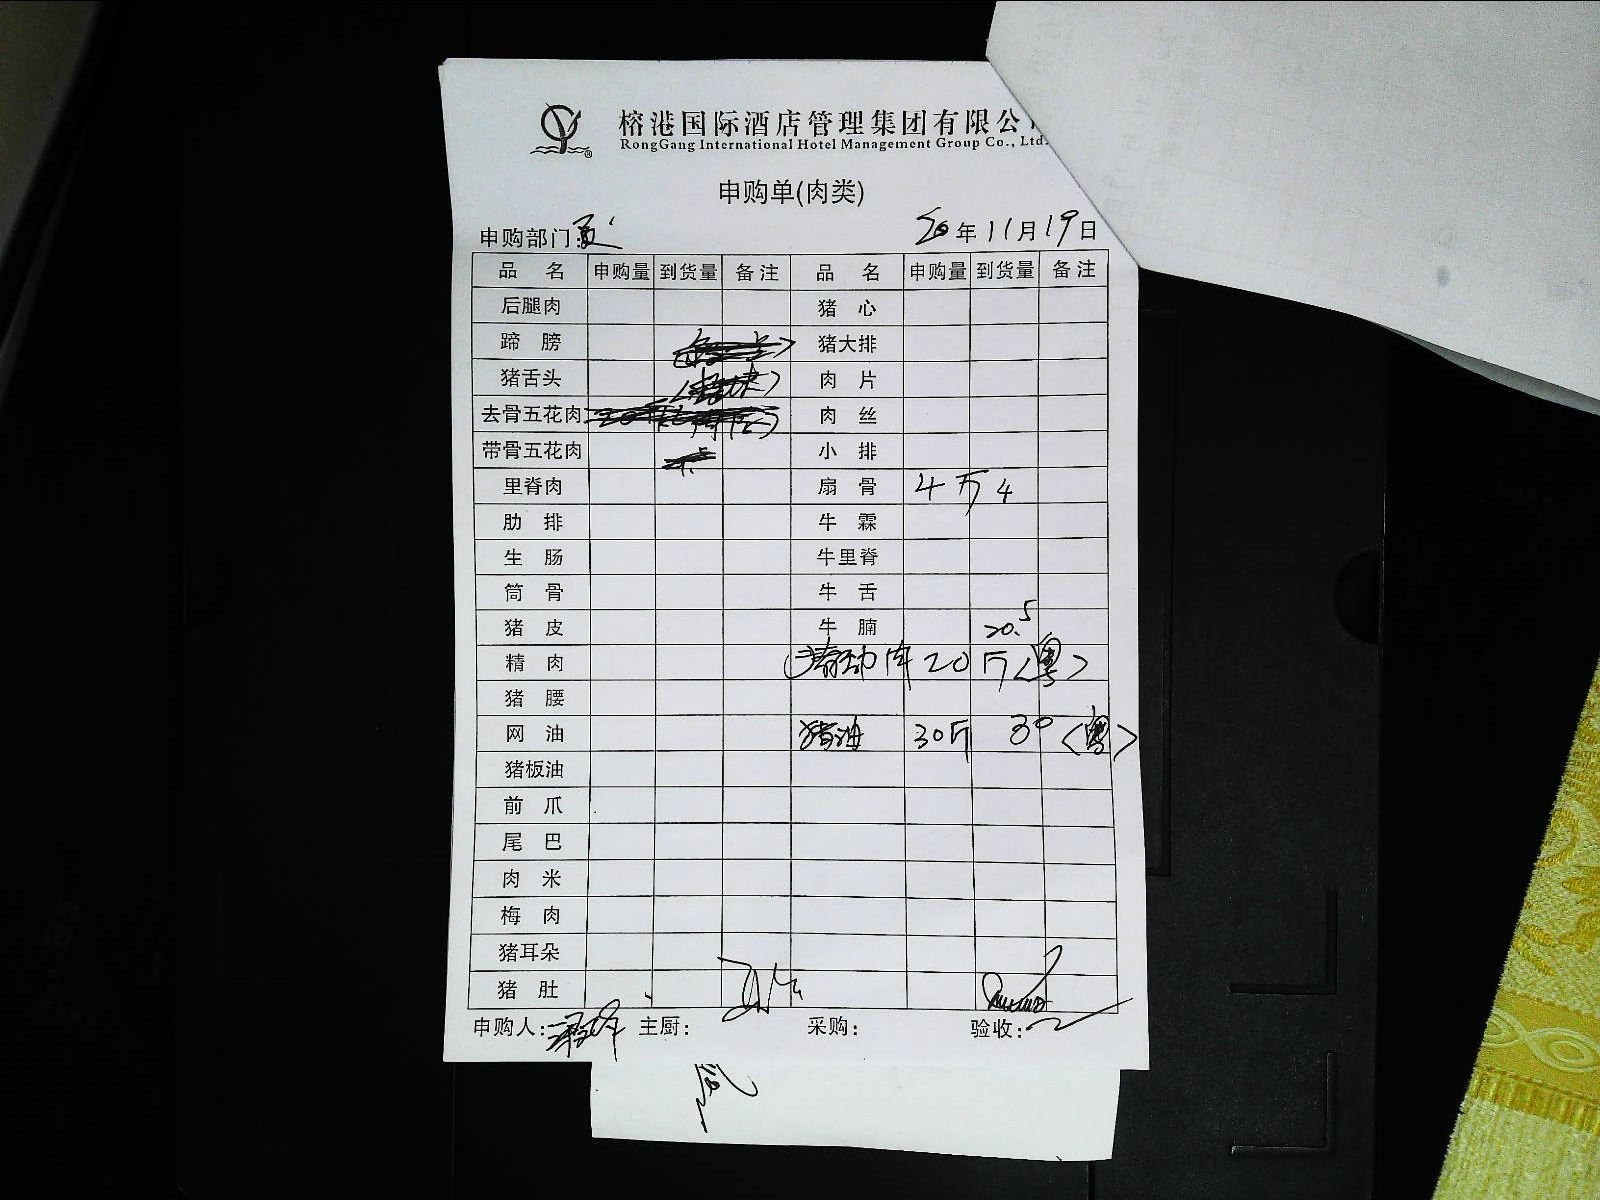 榕港国际酒店管理集团有限公
RongGang International Hotel Management Group Co., Ltd.
申购单(肉类)
申购部门: 20年11月19日
品 名 申购量 到货量 备注 品 名 申购量 到货量 备注
后腿肉 猪 心
蹄 膀 猪大排
猪舌头 肉 片
去骨五花肉 肉 丝
带骨五花肉 小 排
里脊肉 扇 骨 4斤 4
肋 排 牛 霖
生 肠 牛里脊
筒 骨 牛 舌
猪 皮 牛 腩 20.5
精 肉 20斤(粤)
猪 腰
网 油 猪油 30斤 30 (粤)
猪板油
前 爪
尾 巴
肉 米
梅 肉
猪耳朵
猪 肚
申购人: 主厨: 采购: 验收: